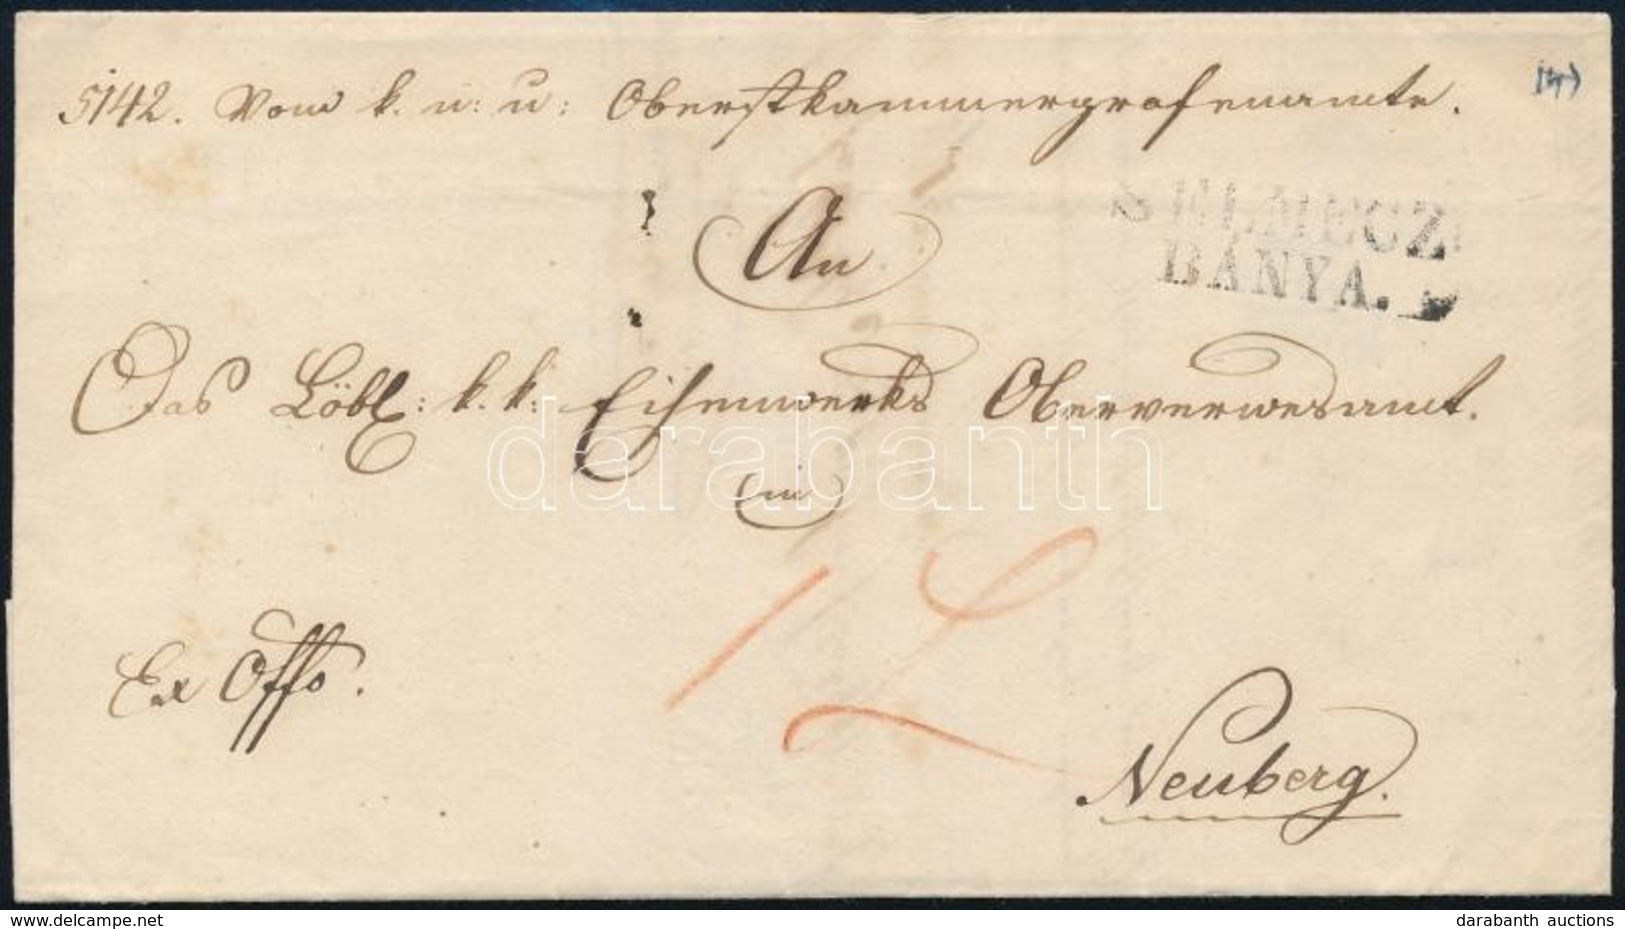 5142. Vom k. u: u: Oberstkammergrafenamte.
SELMECZ
BÁNYA.
An
Das Löbl: k. k: Eisenwerks Oberverwesamt.
in
darabanth
1 L
Ex Offo.
Neuberg.
www.delcampe.net
darabanth auctions